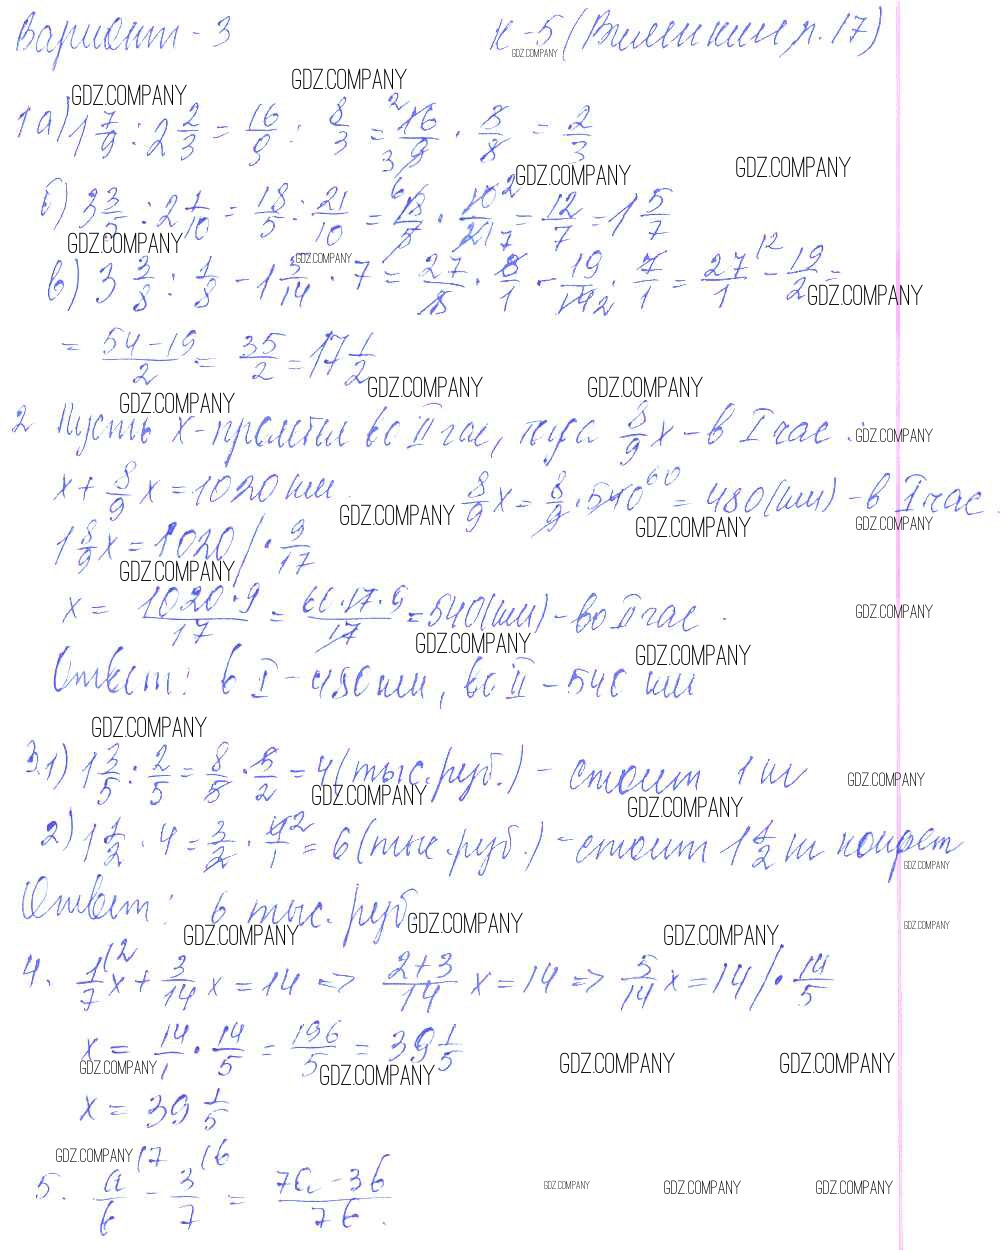 Вариант - 3 К-5 (Виленкин п. 17)
1 а) 1 7/9 : 2 2/3 = 16/9 : 8/3 = 16/9 · 3/8 = 2/3
б) 3 3/5 : 2 1/10 = 18/5 : 21/10 = 18/5 · 10/21 = 12/7 = 1 5/7
в) 3 3/8 : 1/8 - 1 5/14 · 7 = 27/8 · 8/1 - 19/14 · 7/1 = 27/1 - 19/2 =
= (54 - 19)/2 = 35/2 = 17 1/2
2 Пусть x - пролетел во II час, тогда 8/9 x - в I час.
x + 8/9 x = 1020 км. 8/9 x = 8/9 · 540 = 480 (км) - в I час.
1 8/9 x = 1020 / · 9/17
x = (1020 · 9)/17 = (60 · 17 · 9)/17 = 540 (км) - во II час.
Ответ: в I - 480 км, во II - 540 км
3. 1) 1 3/5 : 2/5 = 8/5 · 5/2 = 4 (тыс. руб.) - стоит 1 кг
2) 1 1/2 · 4 = 3/2 · 4/1 = 6 (тыс. руб.) - стоит 1 1/2 кг конфет
Ответ: 6 тыс. руб.
4. 1/7 x + 3/14 x = 14 => (2+3)/14 x = 14 => 5/14 x = 14 / · 14/5
x = 14/1 · 14/5 = 196/5 = 39 1/5
x = 39 1/5
5. a/b - 3/7 = (7a - 3b)/7b.
GDZ.COMPANY